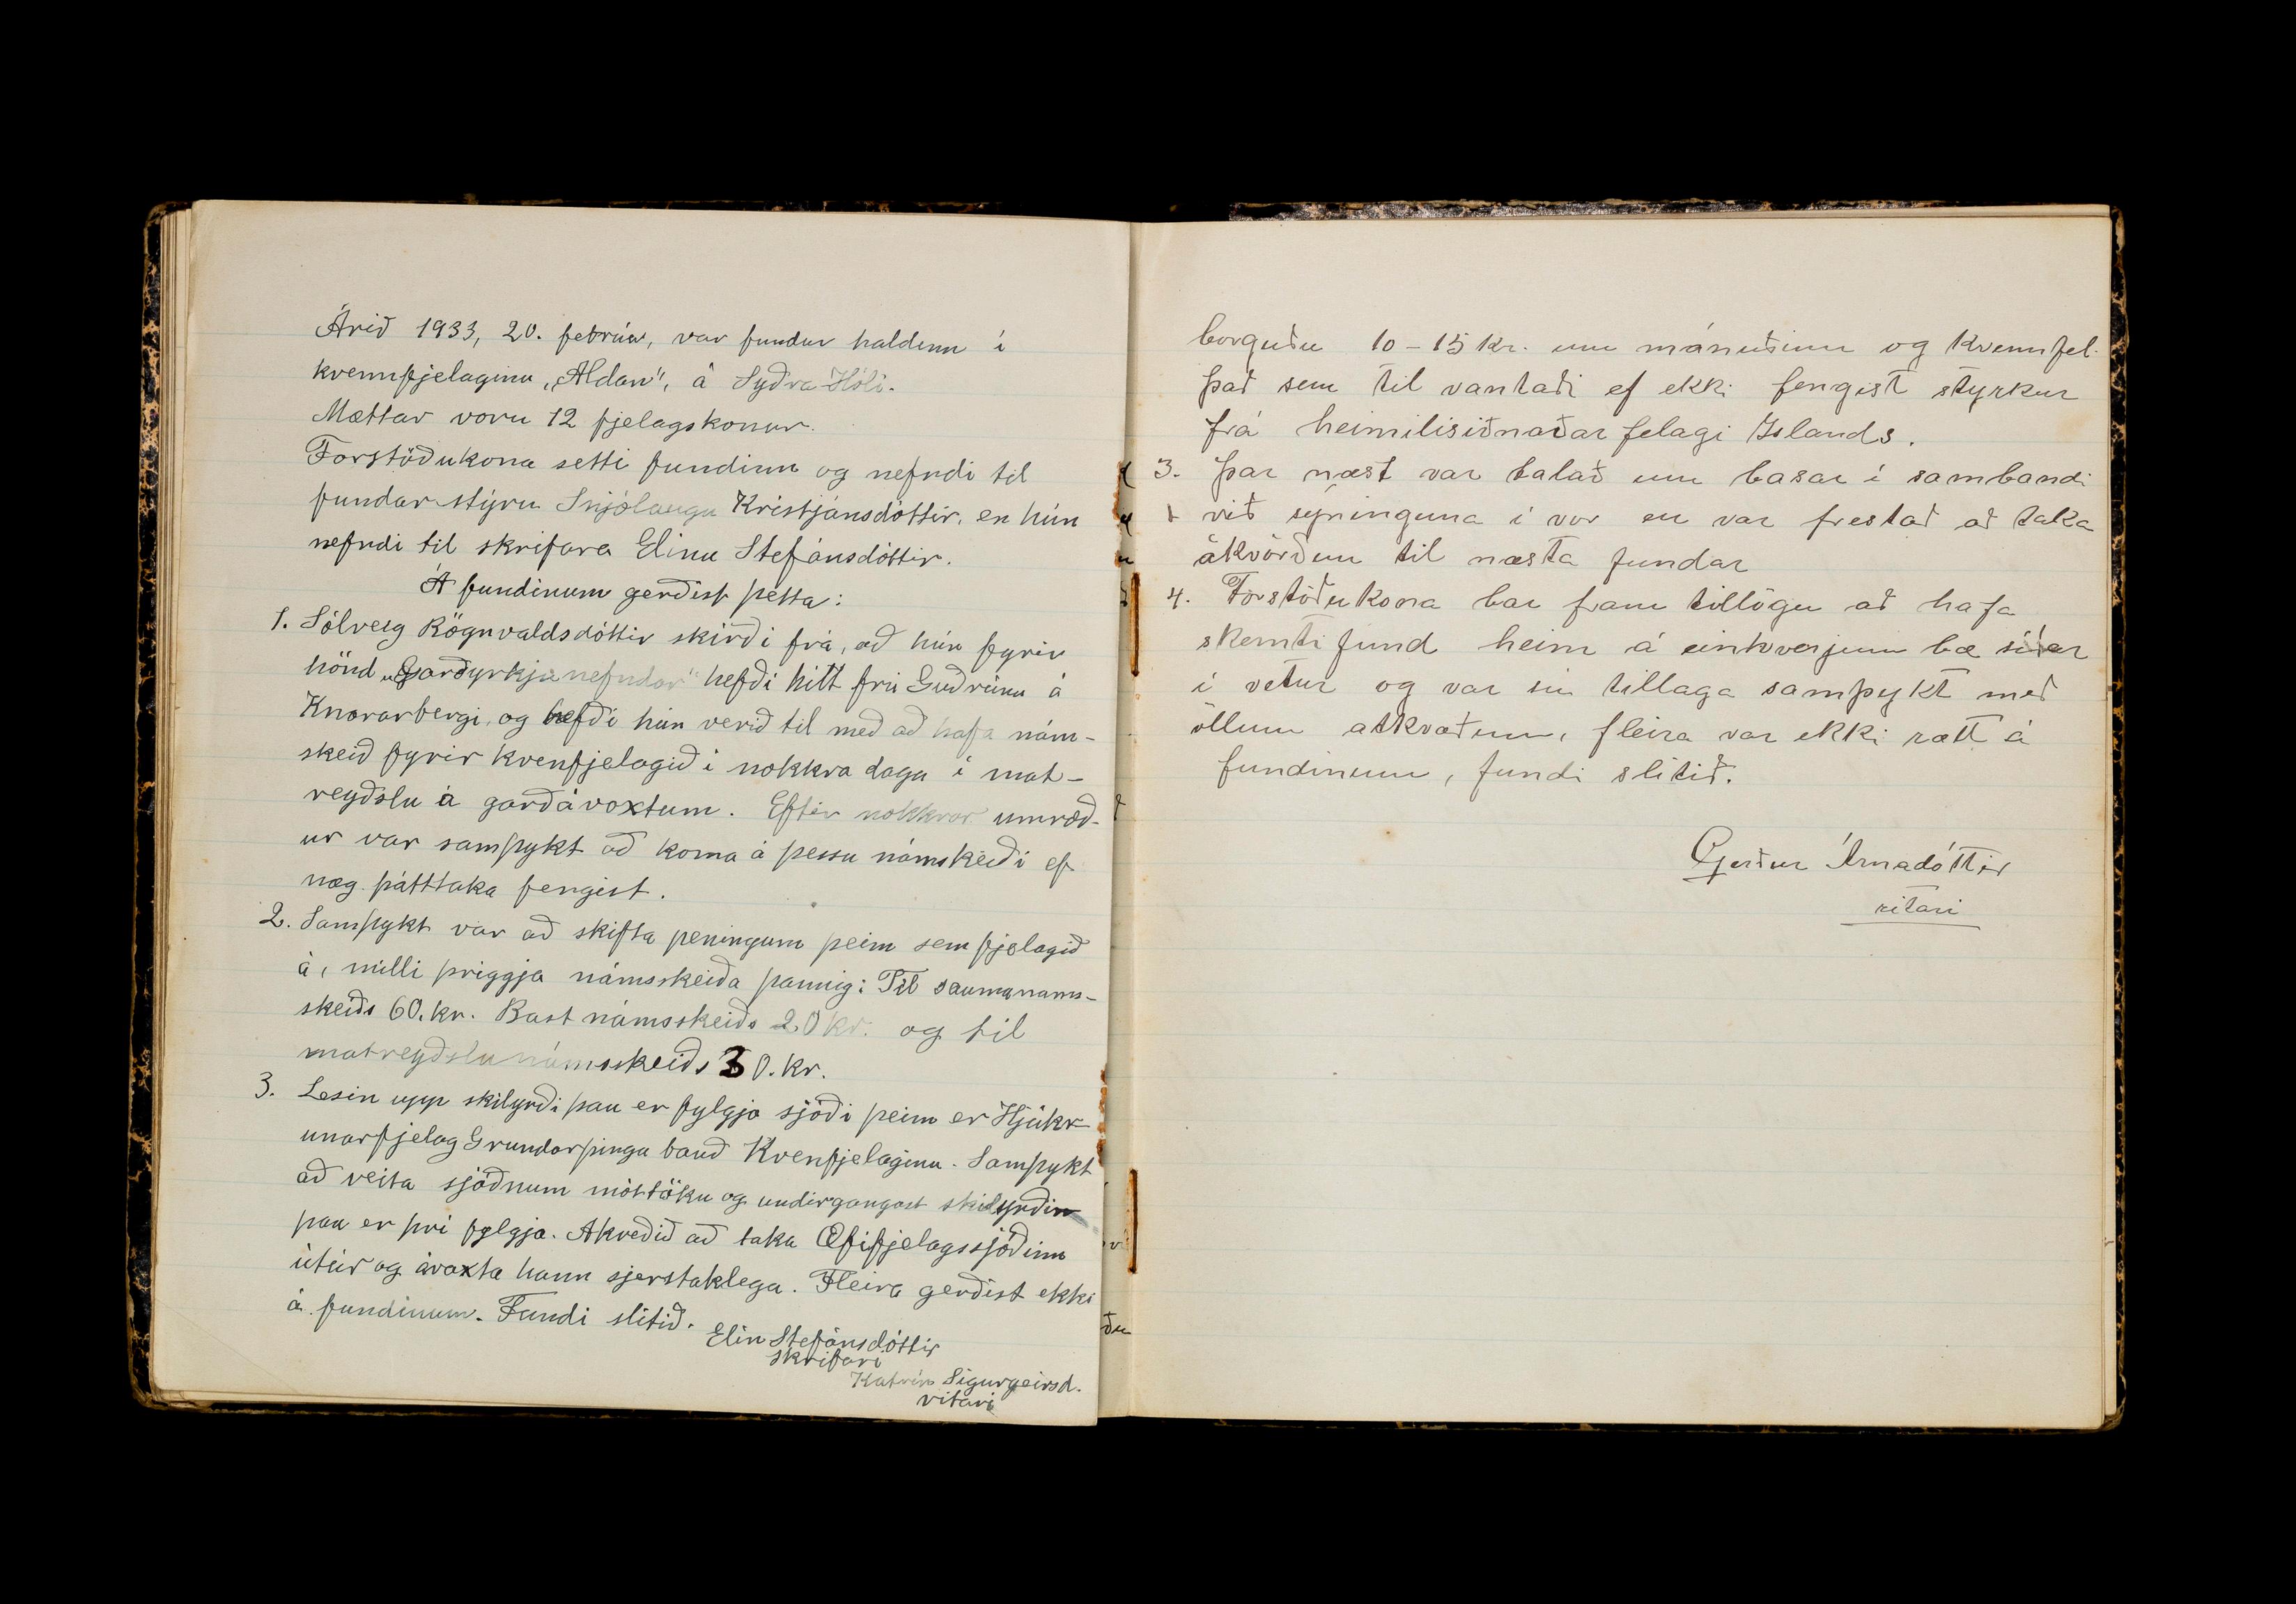 Árið 1933, 20. febrúar, var fundur haldinn í
kvennfjelaginu „Aldan", á Syðra-Hóli.
Mættar voru 12 fjelagskonur.
Forstöðukona setti fundinn og nefndi til
fundarstýru Snjólaugu Kristjánsdóttir, en hún
nefndi til skrifara Elínu Stefánsdóttir.
Á fundinum gerðist þetta:
1. Sólveig Rögnvaldsdóttir skírði frá, að hún fyrir
hönd „Garðyrkjunefndar" hefði hitt frú Guðrúnu á
Knararbergi, og hefði hún verið til með að hafa nám-
skeið fyrir kvenfjelagið í nokkra daga í mat-
reyðslu á garðávoxtum. Eftir nokkrar umræð-
ur var samþykt að koma á þessu námskeiði ef
næg þátttaka fengist.
2. Samþykt var að skifta peningum þeim sem fjelagið
á, milli þriggja námsskeiða þannig: Til saumanams-
skeiðs 60. kr. Bast námsskeiðs 20 kr. og til
matreyðslunámsskeiðs 30. kr.
3. Lesin upp skilyrði þau er fylgja sjóði þeim er Hjúkr-
unarfjelag Grundarþinga bauð Kvenfjelaginu. Samþykt
að veita sjóðnum móttöku og undirgangast skilyrðin
þau er því fylgja. Akveðið að taka Æfifjelagssjóðinn
útúr og ávaxta hann sjerstaklega. Fleira gerðist ekki
á fundinum. Fundi slitið.
Elín Stefánsdóttir
skrifari
Katrín Sigurgeirsd.
ritari
borguðu 10-15 kr. um mánuðinn og Kvennfel.
það sem til vantaði ef ekki fengist styrkur
frá heimilisiðnaðar felagi Islands.
3. þar næst var talað um basar í sambandi
við sýninguna í vor en var frestað að taka
ákvörðun til næsta fundar
4. Forstöðukona bar fram tillögu að hafa
skemtifund heim á einhverjum bæ síðar
í vetur og var sú tillaga samþykt með
öllum atkvæðum, fleira var ekki rætt á
fundinum, fundi slitið.
Gerður Árnadóttir
ritari